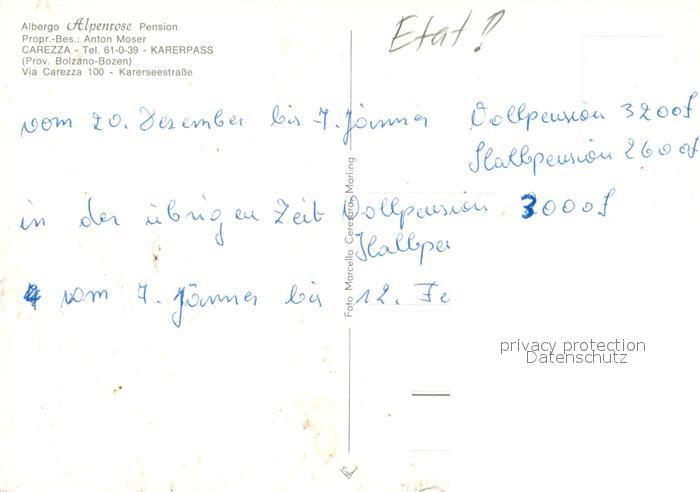 Albergo Alpenrose Pension
Propr.-Bes.: Anton Moser
CAREZZA - Tel. 61-0-39 - KARERPASS
(Prov. Bolzano-Bozen)
Via Carezza 100 - Karerseestraße
Etat!
vom 20. Dezember bis 7. Jänner Vollpension 3200
Halbpension 2600
in der übrigen Zeit Vollpension 3000
Halbpe
vom 7. Jänner bis 12. Fe
Foto Marcello Ceresara, Marling
privacy protection
Datenschutz